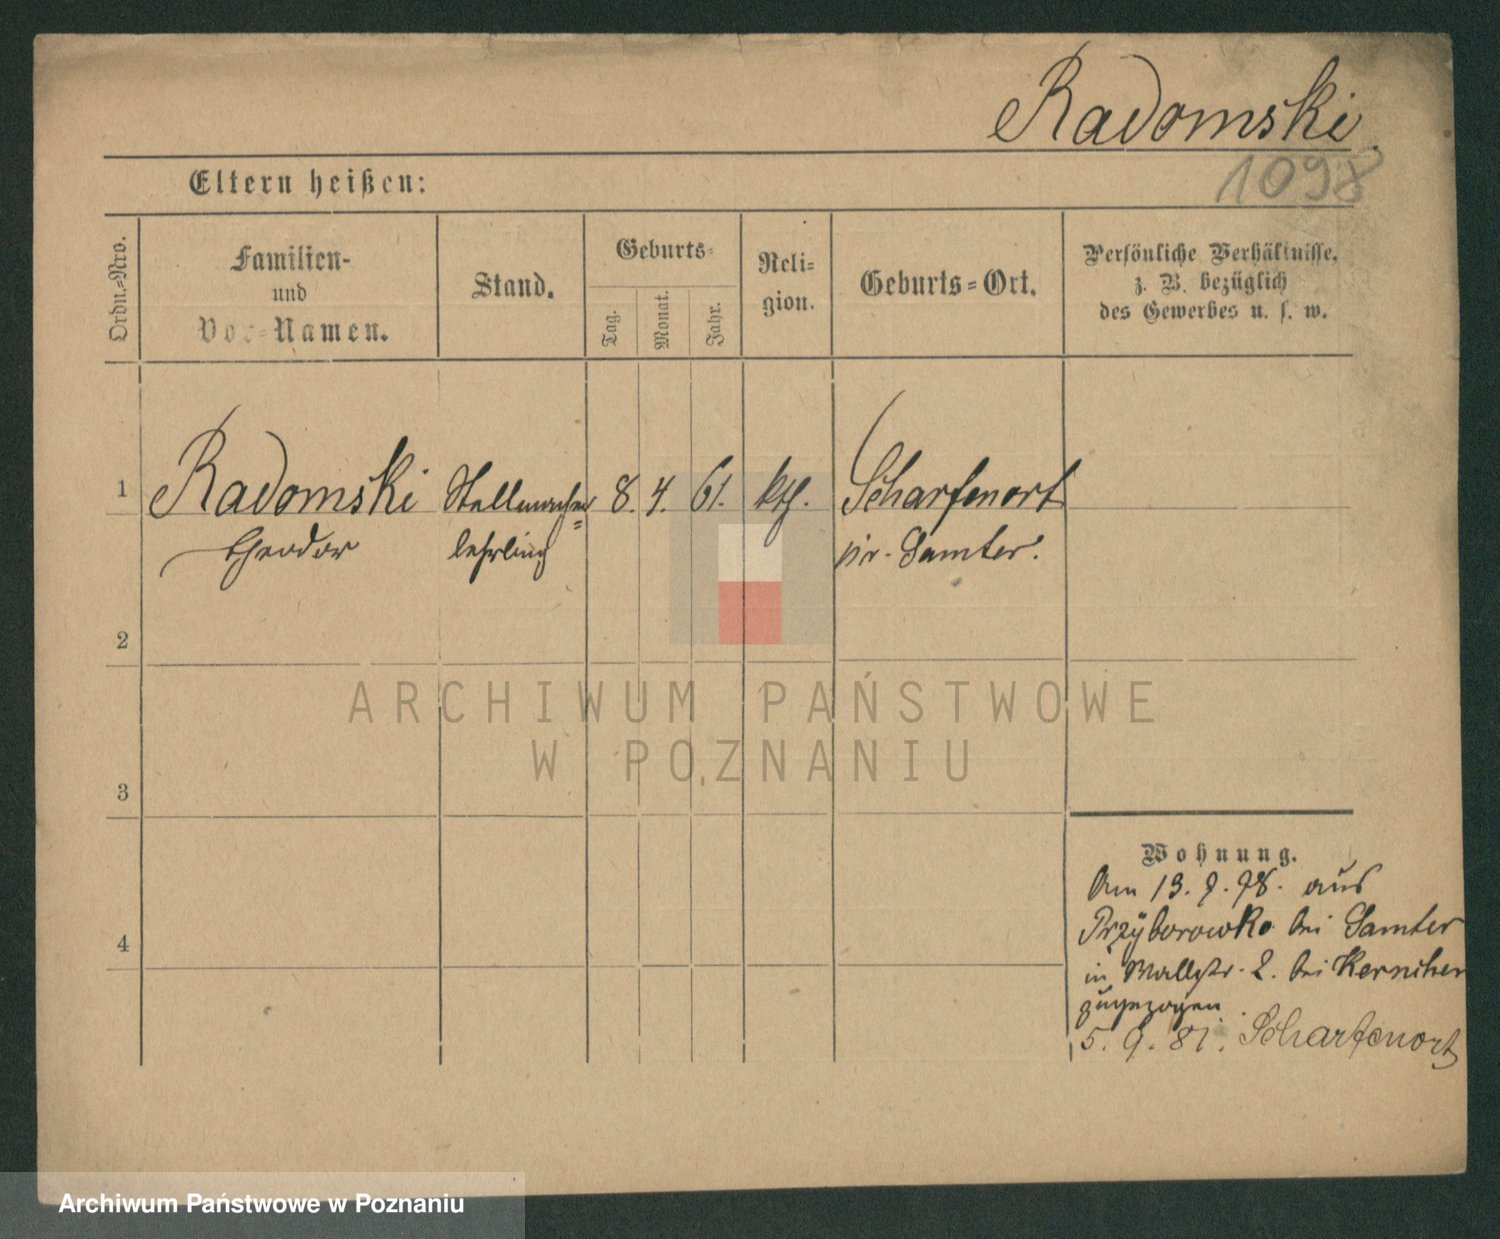 Radomski.
1098
Eltern heißen:
Ordn.=Nro.
Familien-
und
Vor=Namen.
Stand.
Geburts=
Tag.
Monat.
Jahr.
Reli=
gion.
Geburts=Ort.
Persönliche Verhältnisse,
z. B. bezüglich
des Gewerbes u. s. w.
1
Radomski
Theodor
Stellmacher=
lehrling
8. 4. 61. kth.
Scharfenort
Kr. Samter.
2
3
4
Wohnung.
Am 13. 9. 78. aus
Przyborowko bei Samter
in Wallstr. 2. bei
zugezogen
5. 9. 81. Scharfenort
ARCHIWUM PAŃSTWOWE
W POZNANIU
Archiwum Państwowe w Poznaniu